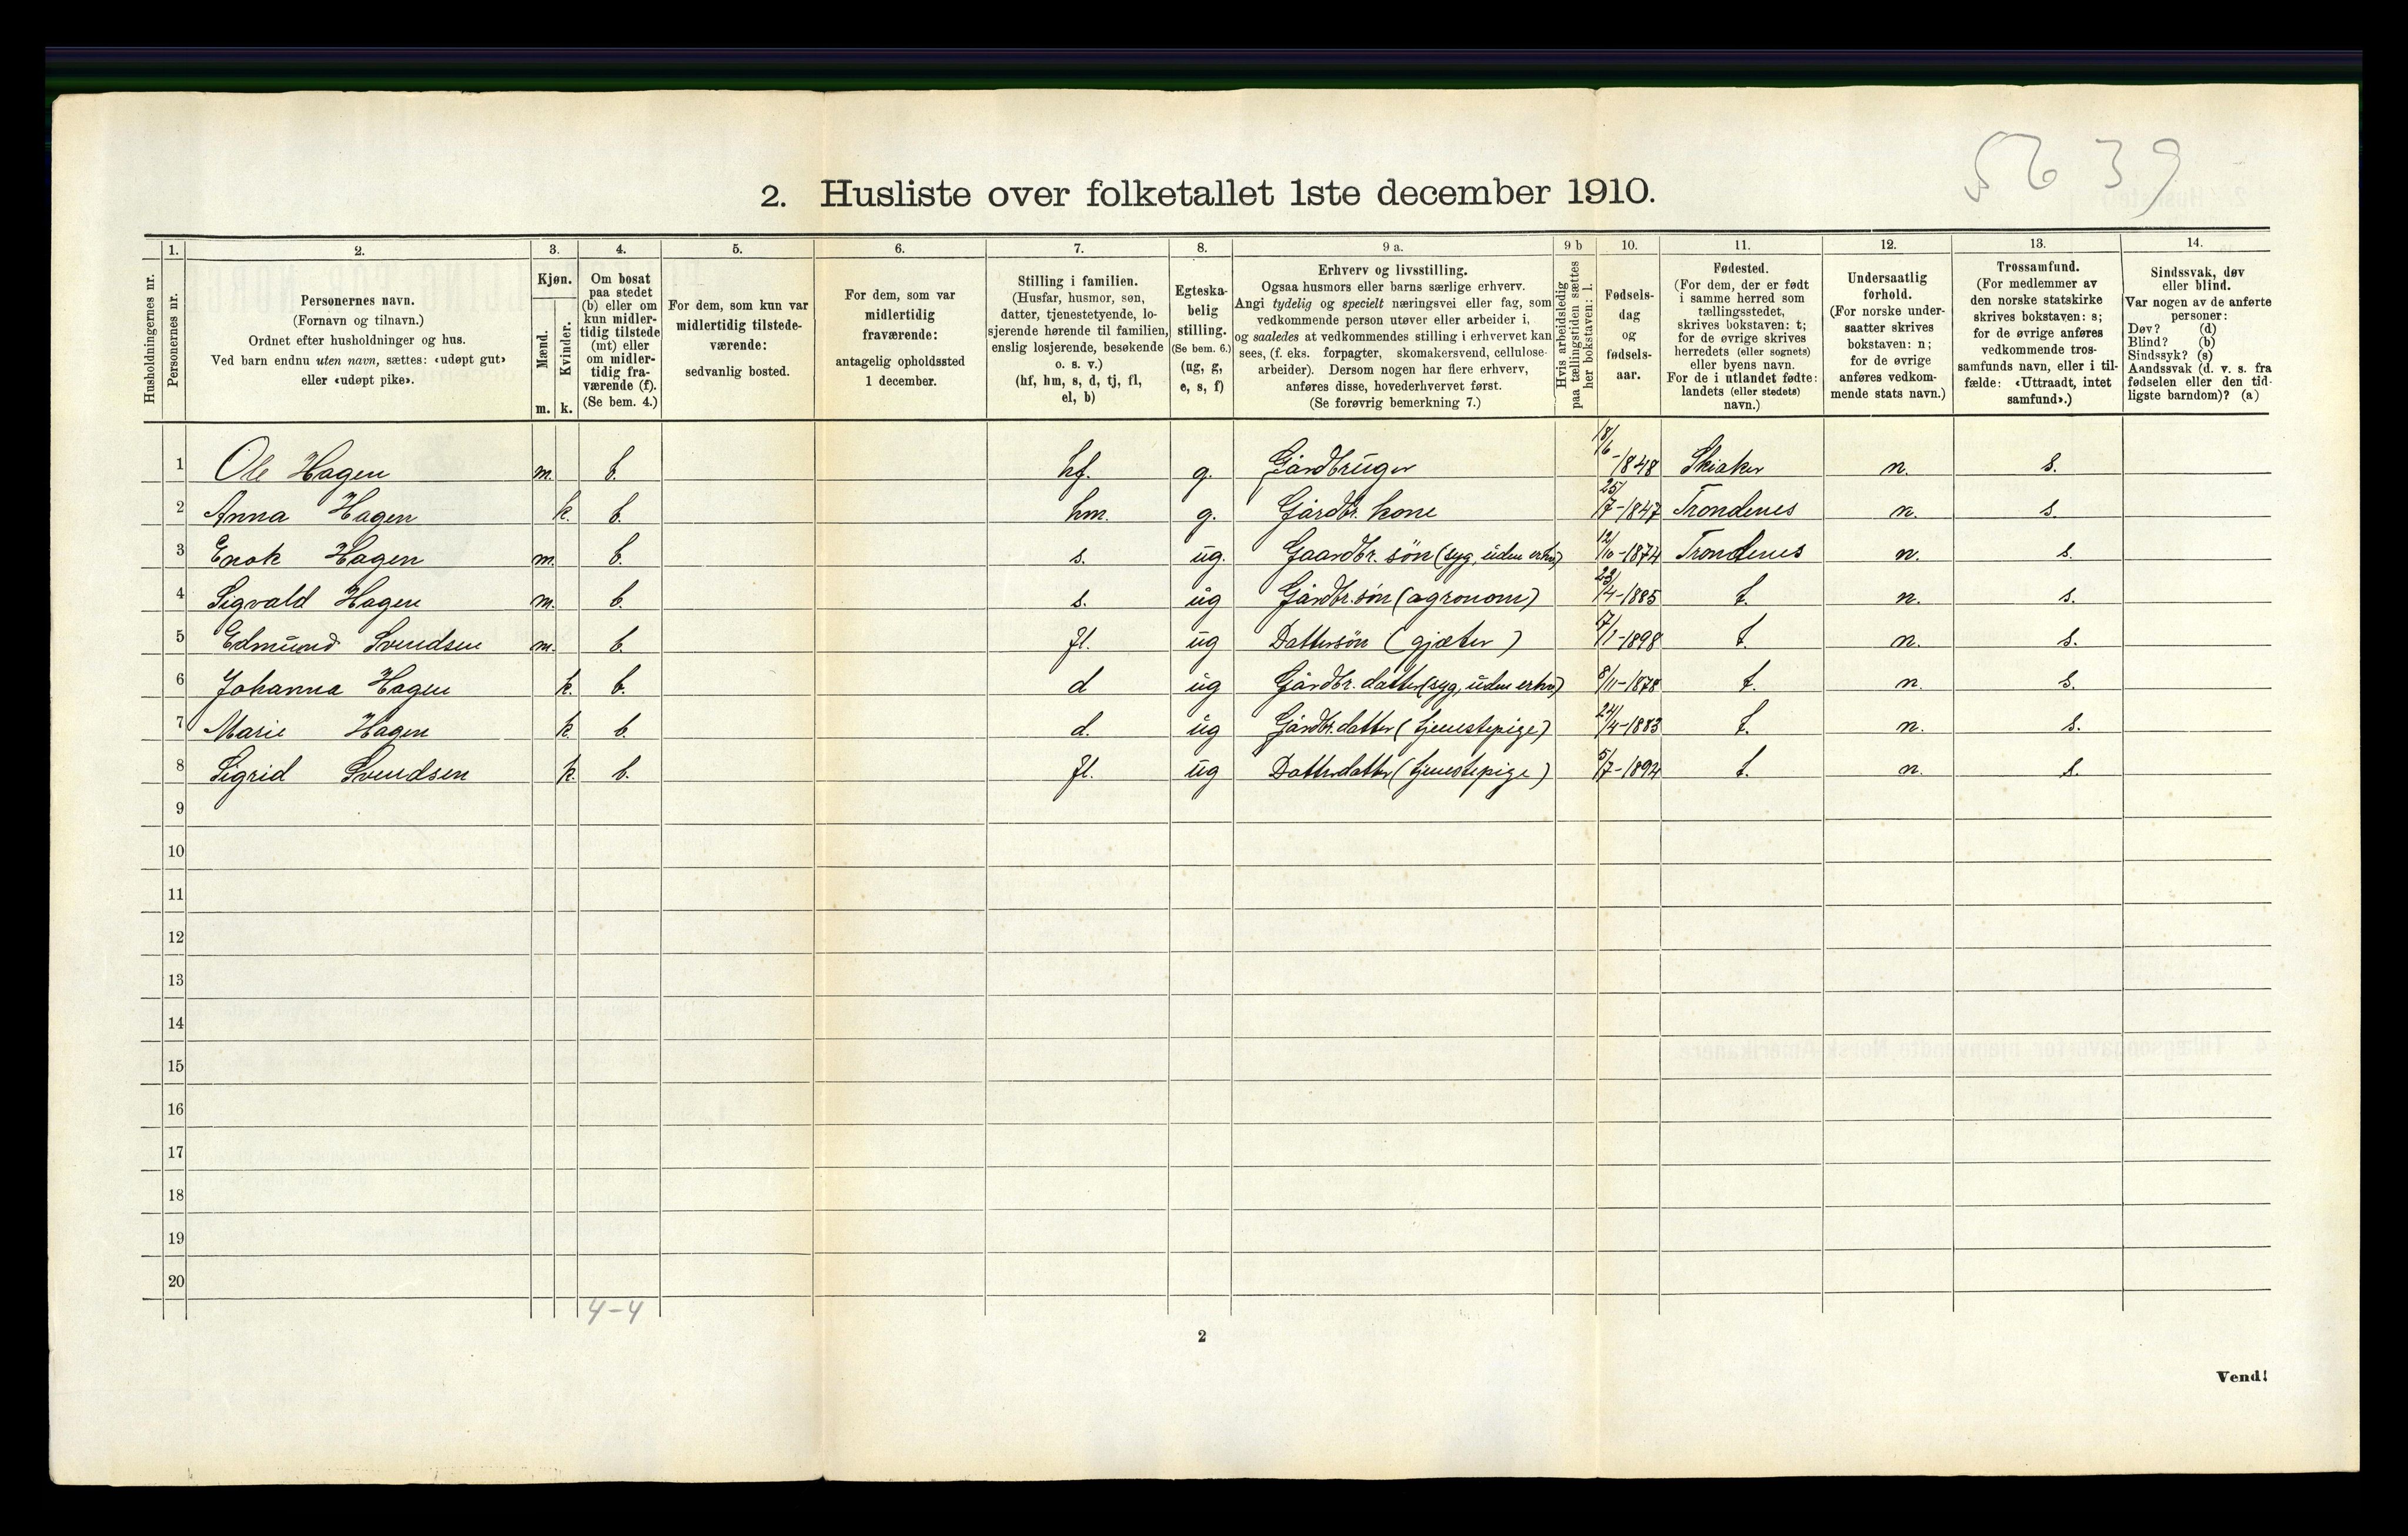 56 39
2. Husliste over folketallet 1ste december 1910.
Husholdningernes nr.
1. Personernes nr.
2. Personernes navn. (Fornavn og tilnavn.) Ordnet efter husholdninger og hus. Ved barn endnu uten navn, sættes: «udøpt gut» eller «udøpt pike».
3. Kjøn. Mænd. m. Kvinder. k.
4. Om bosat paa stedet (b) eller om kun midlertidig tilstede (mt) eller om midlertidig fraværende (f). (Se bem. 4.)
5. For dem, som kun var midlertidig tilstedeværende: sedvanlig bosted.
6. For dem, som var midlertidig fraværende: antagelig opholdssted 1 december.
7. Stilling i familien. (Husfar, husmor, søn, datter, tjenestetyende, losjerende hørende til familien, enslig losjerende, besøkende o. s. v.) (hf, hm, s, d, tj, fl, el, b)
8. Egteskabelig stilling. (Se bem. 6.) (ug, g, e, s, f)
9 a. Erhverv og livsstilling. Ogsaa husmors eller barns særlige erhverv. Angi tydelig og specielt næringsvei eller fag, som vedkommende person utøver eller arbeider i, og saaledes at vedkommendes stilling i erhvervet kan sees, (f. eks. forpagter, skomakersvend, cellulosearbeider). Dersom nogen har flere erhverv, anføres disse, hovederhvervet først. (Se forøvrig bemerkning 7.)
9 b Hvis arbeidsledig paa tællingstiden sættes her bokstaven: l.
10. Fødselsdag og fødselsaar.
11. Fødested. (For dem, der er født i samme herred som tællingsstedet, skrives bokstaven: t; for de øvrige skrives herredets (eller sognets) eller byens navn. For de i utlandet fødte: landets (eller stedets) navn.)
12. Undersaatlig forhold. (For norske undersaatter skrives bokstaven: n; for de øvrige anføres vedkommende stats navn.)
13. Trossamfund. (For medlemmer av den norske statskirke skrives bokstaven: s; for de øvrige anføres vedkommende trossamfunds navn, eller i tilfælde: «Uttraadt, intet samfund».)
14. Sindssvak, døv eller blind. Var nogen av de anførte personer: Døv? (d) Blind? (b) Sindssyk? (s) Aandssvak (d. v. s. fra fødselen eller den tidligste barndom)? (a)
1 Ole Hagen m. b. hf. g. Gårdbruger 18/6-1848 Skiaker n. s.
2 Anna Hagen k. b. hm. g. Gårdbr. kone 25/7-1847 Trondenes n. s.
3 Enok Hagen m. b. s. ug. Gaardbr. søn (syg, uden erhv) 12/10-1874 Trondenes n. s.
4 Sigvald Hagen m. b. s. ug Gårdbr. søn (agronom) 23/4-1885 t. n. s.
5 Edmund Svendsen m. b. fl. ug Dattersøn (gjæter) 7/1-1898 t. n. s.
6 Johanna Hagen k. b. d ug Gårdbr. datter (syg, uden erhv) 8/11-1878 t. n. s.
7 Marie Hagen k. b. d. ug Gårdbr. datter (tjenestepige) 24/4-1883 t. n. s.
8 Sigrid Svendsen k. b. fl. ug Datterdatter (tjenestepige) 5/7-1892 t. n. s.
9
10
11
12
13
14
15
16
17
18
19
20
4-4
2
Vend!